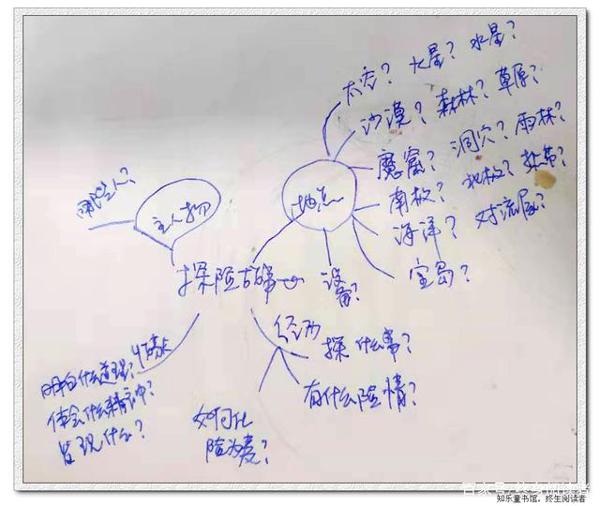 太空？ 火星？ 水星？
沙漠？ 森林？ 草原？
魔窟？ 洞穴？ 雨林？
南极？ 北极？
海洋？ 对流层？
宝岛？
地点
哪些人？
主人物
探险故事
设备？
经历
探什么事？
有什么险情？
如何化
险为夷？
明白什么道理？
体会什么精神？
发现什么？
知乐童书馆，终生阅读者